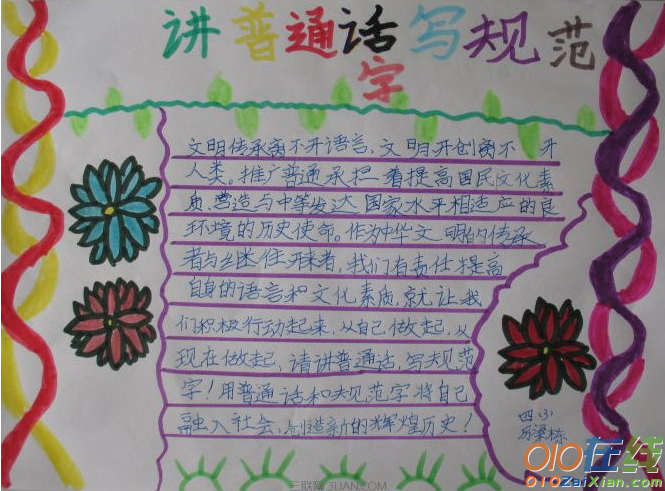 讲普通话写规范
字
文明传承离不开语言,文明开创离不开
人类。推广普通承担着提高国民文化素
质营造与中等发达国家水平相适应的良
环境的历史使命。作为中华文明的传承
者与继任开来者,我们有责任提高
自身的语言和文化素质,就让我
们积极行动起来,从自己做起,从
现在做起,请讲普通话,写规范
字!用普通话和规范字将自己
融入社会,创造新的辉煌历史!
四(3)
三联网 3LIAN.COM
010在线
010ZaiXian.com